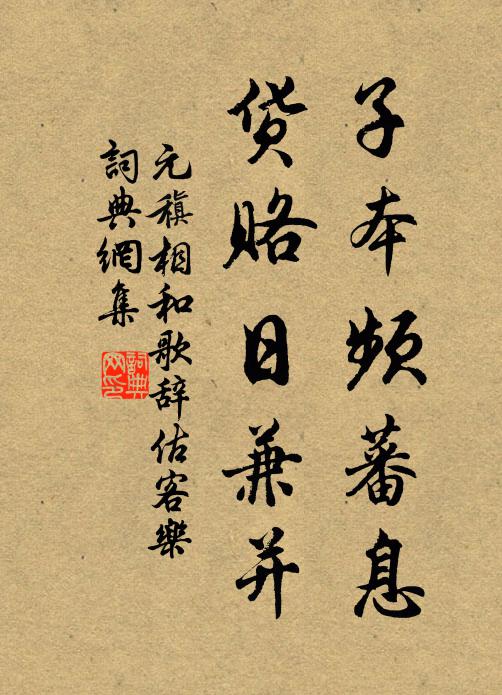 子本频蕃息
货赂日兼并
元稹相和歌辞估客樂
詞典網集
詞典网印